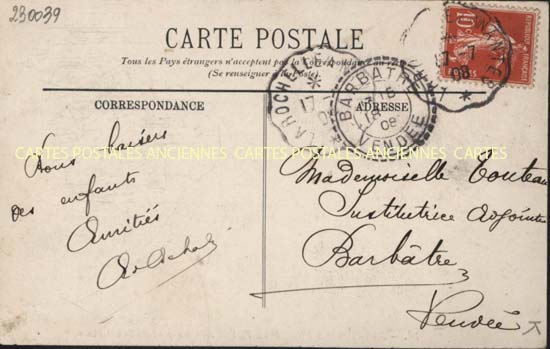 230039
CARTE POSTALE
Tous les Pays étrangers n'acceptent pas la Correspondance au
(Se renseigner à
CORRESPONDANCE
ADRESSE
LA ROCHE
17
BARBATRE
15
18
08
VENDÉE
17-7
08
REPUBLIQUE FRANÇAISE
10
CARTES POSTALES ANCIENNES CARTES POSTALES ANCIENNES CARTES
Bons baisers
des enfants
Amitiés
Mademoiselle
Institutrice Adjointe
Barbâtre
Vendée